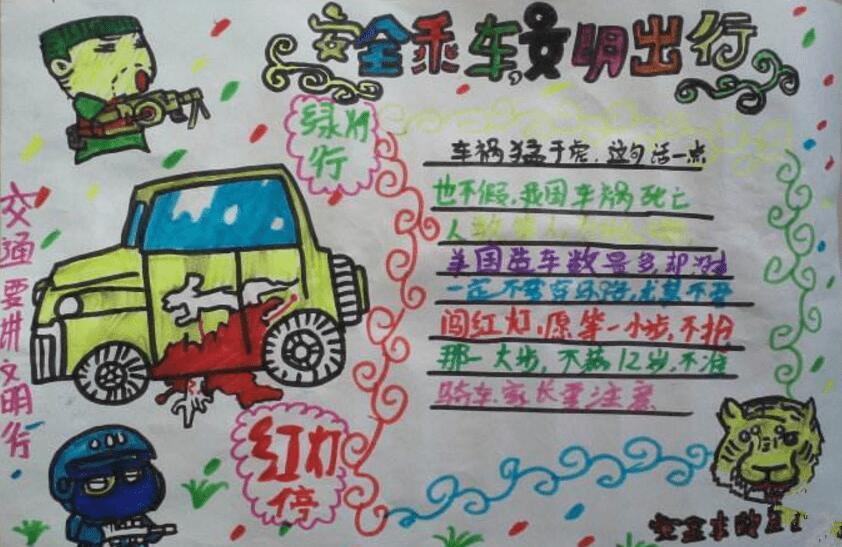 安全乘车,文明出行
绿灯
行
车祸猛于虎,这句话一点
也不假,我国车祸死亡
人数
美国造车数量多,却没有
一定不要穿马路,尤其不要
闯红灯,愿等一小步,不抢
那一大步,不满12岁,不准
骑车,家长要注意
红灯
停
交通要讲文明行
安全